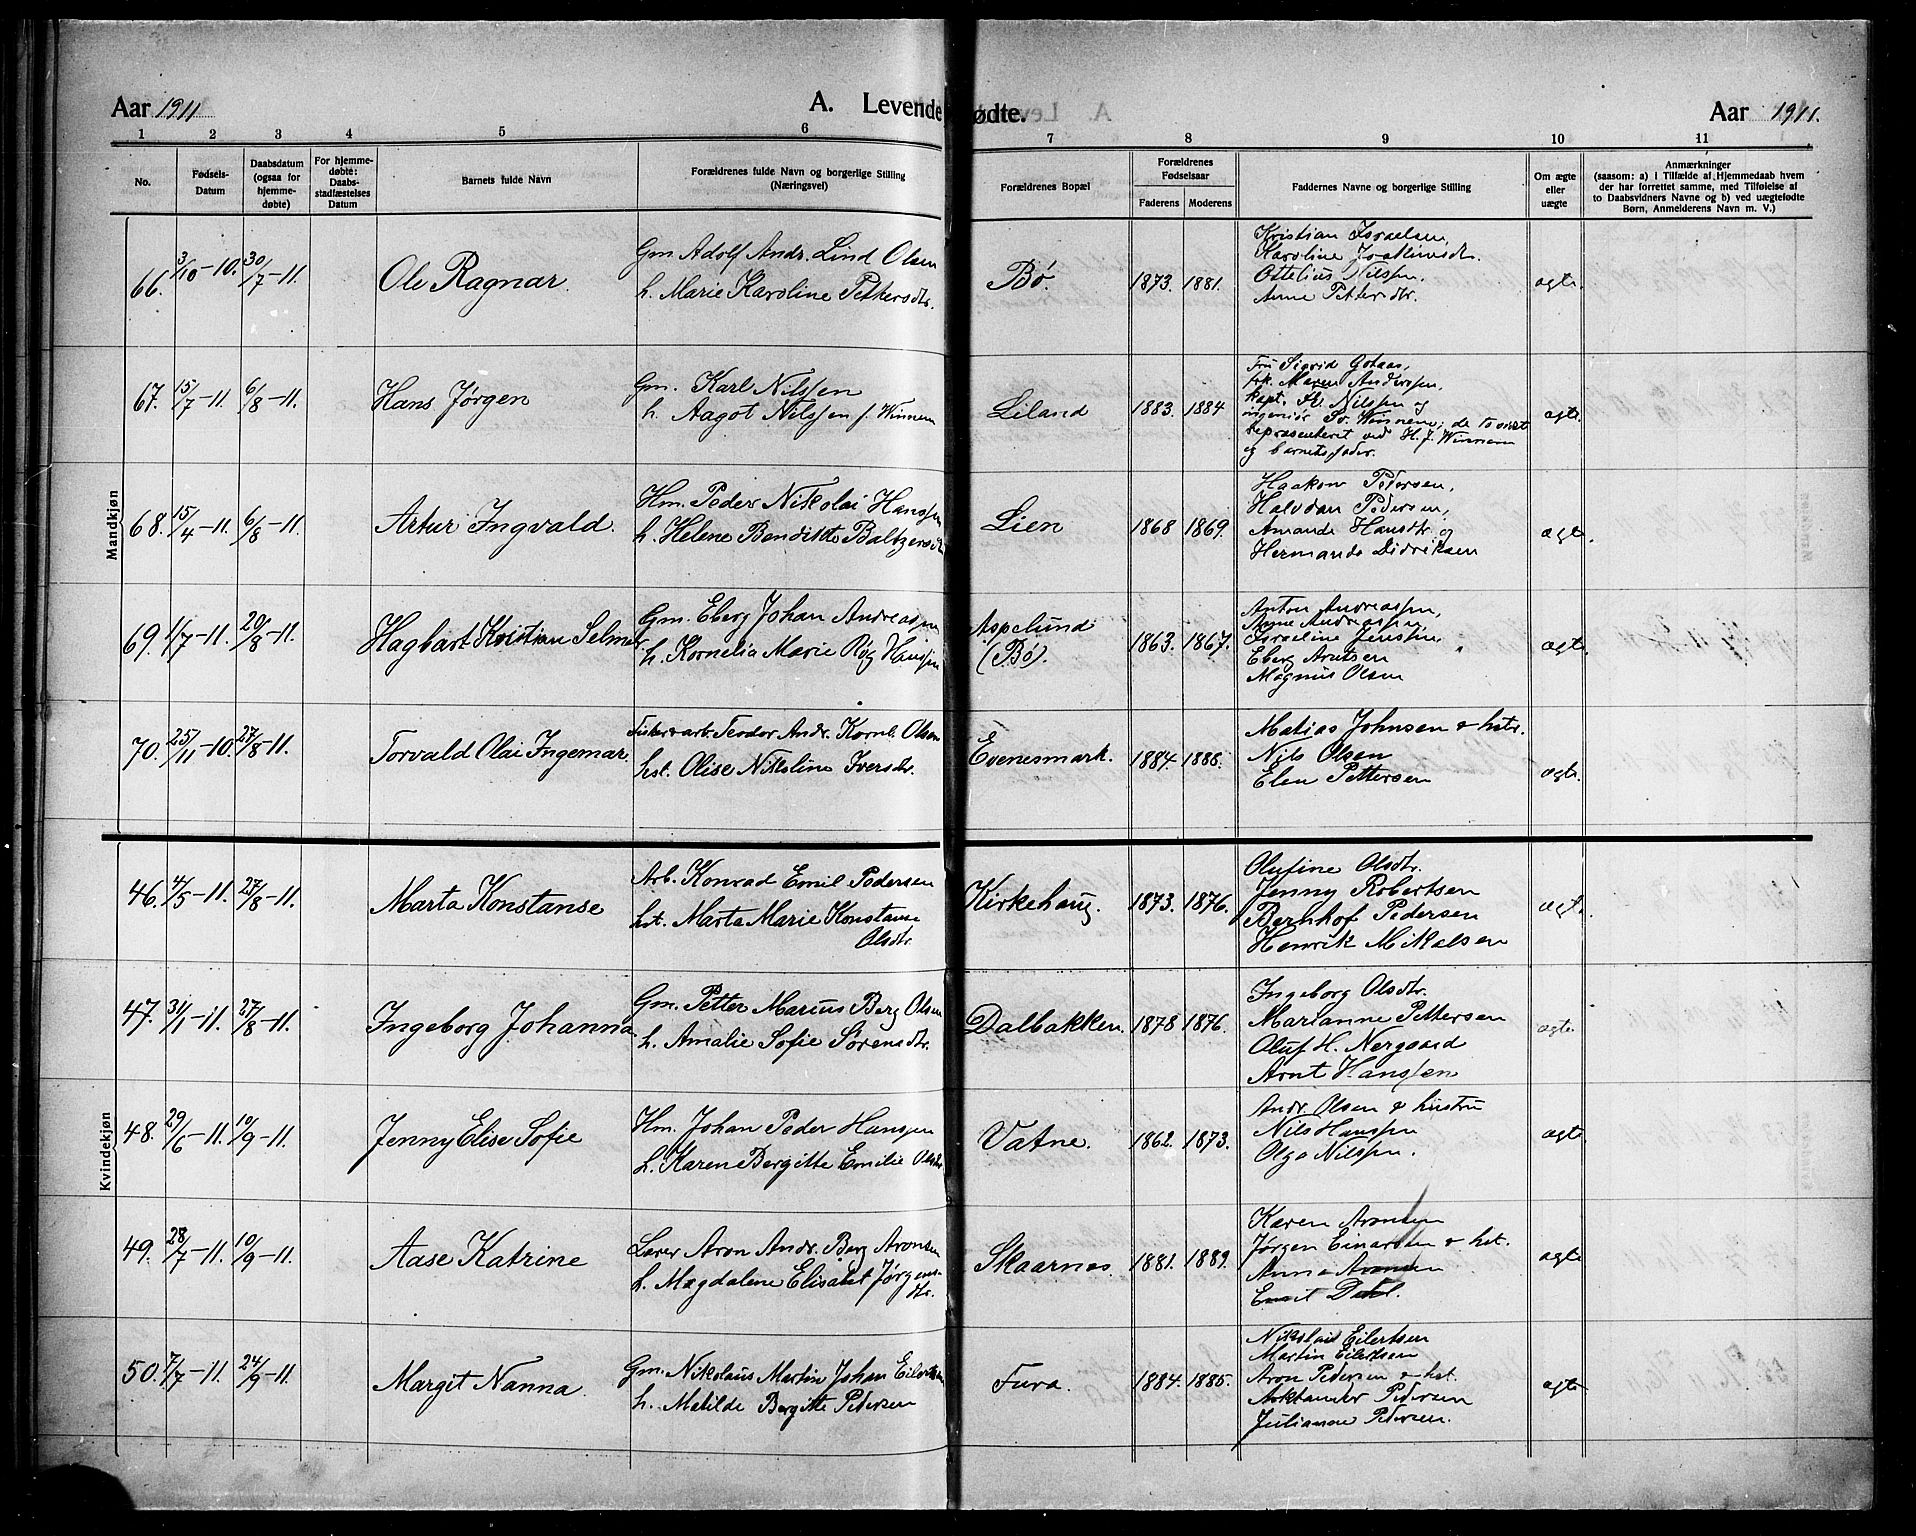 Aar 1911 A. Levende
ødte. Aar 1911.
1 2 3 4 5 6 7 8 9 10 11
No.
Fødsels-
Datum
Daabsdatum
(ogsaa for
hjemme-
døbte)
For hjemme-
døbte:
Daabs-
stadfæstelses
Datum
Barnets fulde Navn
Forældrenes fulde Navn og borgerlige Stilling
(Næringsvei)
Forældrenes Bopæl
Forældrenes
Fødselsaar
Faderens Moderens
Faddernes Navne og borgerlige Stilling
Om ægte
eller
uægte
Anmærkninger
(saasom: a) i Tilfælde af Hjemmedaab hvem
der har forrettet samme, med Tilføielse af
to Daabsvidners Navne og b) ved uægtefødte
Børn, Anmelderens Navn m. V.)
Mandkjøn
66. 3/10-10. 30/7-11. Ole Ragnar.
Gm. Adolf Andr. Lind Olsen
h. Marie Karoline Pettersdtr.
Bø. 1873. 1881.
Kristian Israelsen,
Karoline Joakimsdtr.
Ottelius Nilsen,
Anne Pettersdtr.
ægte.
67. 15/7-11. 6/8-11. Hans Jørgen
Gm. Karl Nilssen
h. Aagot Nilssen f. Winnem
Liland 1883. 1884
Fru Sigrid Gotaas,
frk. Maren Anderssen,
kapt. H. Nilssen og
ingeniør Sv. Winnem; de to sidste
repræsenteret ved H. J. Winnem
og barnets fader.
ægte.
68. 15/4-11. 6/8-11. Artur Ingvald.
Hm. Peder Nikolai Hanssen
h. Helene Bendikte Baltzersdtr
Lien 1868 1869.
Haakon Pedersen,
Halvdan Pedersen,
Amanda Hansdtr og
Hermande Didriksen
ægte.
69. 1/7-11. 20/8-11. Hagbart Kristian Selmer
Gm. Eberg Johan Andreassen
h. Kornelia Marie Røg Hanssen
Aspelund
(Bø). 1863. 1867.
Anton Andreassen,
Anne Andreassen,
Israeline Jenssen,
Eberg Arntsen
Magnus Olsen
ægte.
70. 25/11-10. 27/8-11. Torvald Olai Ingemar.
Fiskerarb. Teodor Andr. Kornl. Olsen
hst. Olise Nikoline Iversdtr.
Evenesmark. 1884. 1888.
Matias Johnsen & hstr.
Nils Olsen
Elen Pettersen
ægte.
Kvindekjøn
46. 4/5-11. 27/8-11. Marta Konstanse
Arb. Konrad Emil Pedersen
hst. Marta Marie Konstanse
Olsdtr.
Kirkehaug. 1873. 1876.
Olufine Olsdtr.
Jenny Robertsen
Bernhof Pedersen
Henrik Mikalsen
ægte.
47. 31/1-11. 27/8-11. Ingeborg Johanna
Gm. Petter Marius Berg Olsen
h. Amalie Sofie Sørensdtr.
Dalbakken. 1878 1876.
Ingeborg Olsdtr.
Marianne Pettersen
Oluf H. Nergaard
Arnt Hanssen
ægte.
48. 29/6-11. 10/9-11. Jenny Elise Sofie
Hm. Johan Peder Hanssen
h. Karen Bergitte Emilie Olsdtr
Vatne. 1862. 1873.
Andr. Olsen & hustru
Nils Hanssen
Olga Nilssen.
ægte
49. 28/7-11. 10/9-11. Aase Katrine
Lærer Aron Andr. Berg Aronsen
h. Magdalene Elisabet Jørgens-
dtr.
Skaarnes. 1881. 1889.
Karen Aronsen
Jørgen Einarsen & hst.
Anna Aronsen
Emil Dahl.
ægte
50. 7/7-11. 24/9-11. Margit Nanna.
Gm. Nikolaus Martin Johan Eilertsen
h. Matilde Bergitte Pedersen
Fura. 1884. 1885.
Nikolaus Eilertsen
Martin Eilertsen
Aron Pedersen & hst.
Aleksander Pedersen
Julianne Pedersen.
ægte